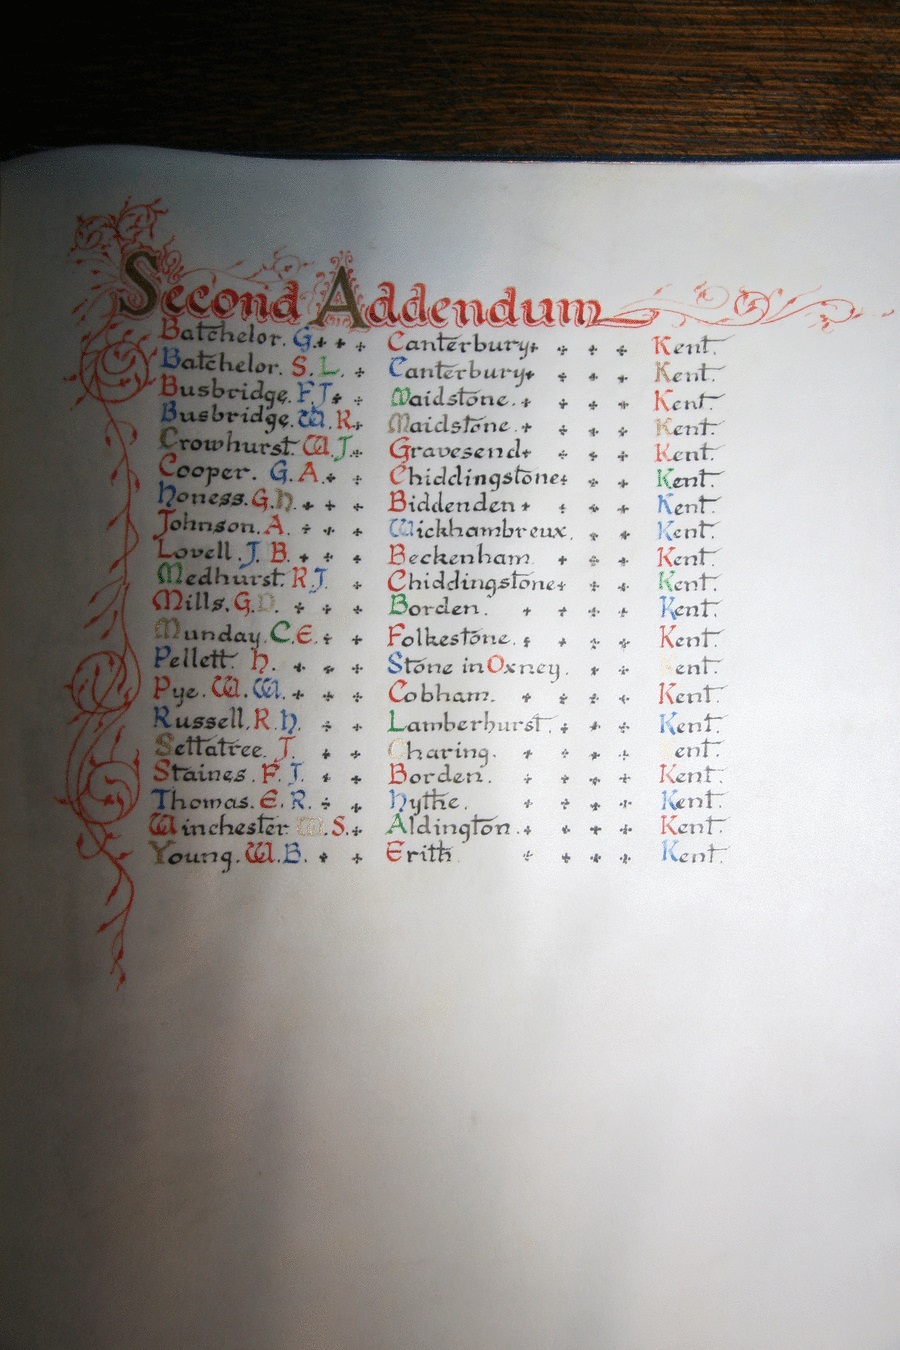 Second Addendum
Batchelor. G. Canterbury Kent.
Batchelor. S. L. Canterbury Kent.
Busbridge. F. J. Maidstone. Kent.
Busbridge. W. R. Maidstone. Kent.
Crowhurst. W. J. Gravesend Kent.
Cooper. G. A. Chiddingstone Kent.
Honess. G. H. Biddenden Kent.
Johnson. A. Wickhambreux. Kent.
Lovell. J. B. Beckenham Kent.
Medhurst. R. J. Chiddingstone Kent.
Mills. G. D. Borden. Kent.
Munday. C. E. Folkestone. Kent.
Pellett. H. Stone in Oxney. Kent.
Pye. W. W. Cobham. Kent.
Russell. R. H. Lamberhurst. Kent.
Settatree. J. Charing. Kent.
Staines. F. J. Borden. Kent.
Thomas. E. R. Hythe. Kent.
Winchester W. S. Aldington. Kent.
Young. W. B. Erith Kent.